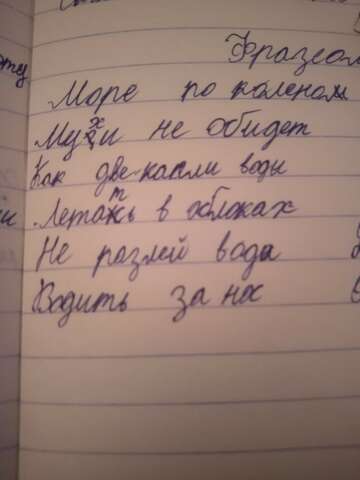 Фразеол
Море по коленом
Мухи не обидет
Как две капли воды
Летать в облоках
Не разлей вода
Водить за нос